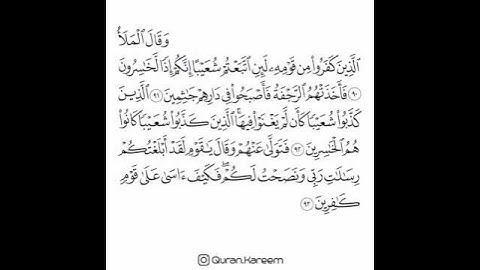 وَقَالَ ٱلْمَلَأُ
ٱلَّذِينَ كَفَرُوا۟ مِن قَوْمِهِۦ لَئِنِ ٱتَّبَعْتُمْ شُعَيْبًا إِنَّكُمْ إِذًا لَّخَـٰسِرُونَ
٩٠ فَأَخَذَتْهُمُ ٱلرَّجْفَةُ فَأَصْبَحُوا۟ فِى دَارِهِمْ جَـٰثِمِينَ ٩١ ٱلَّذِينَ
كَذَّبُوا۟ شُعَيْبًا كَأَن لَّمْ يَغْنَوْا۟ فِيهَا ۚ ٱلَّذِينَ كَذَّبُوا۟ شُعَيْبًا كَانُوا۟
هُمُ ٱلْخَـٰسِرِينَ ٩٢ فَتَوَلَّىٰ عَنْهُمْ وَقَالَ يَـٰقَوْمِ لَقَدْ أَبْلَغْتُكُمْ
رِسَـٰلَـٰتِ رَبِّى وَنَصَحْتُ لَكُمْ ۖ فَكَيْفَ ءَاسَىٰ عَلَىٰ قَوْمٍ
كَـٰفِرِينَ ٩٣
Quran.Kareem